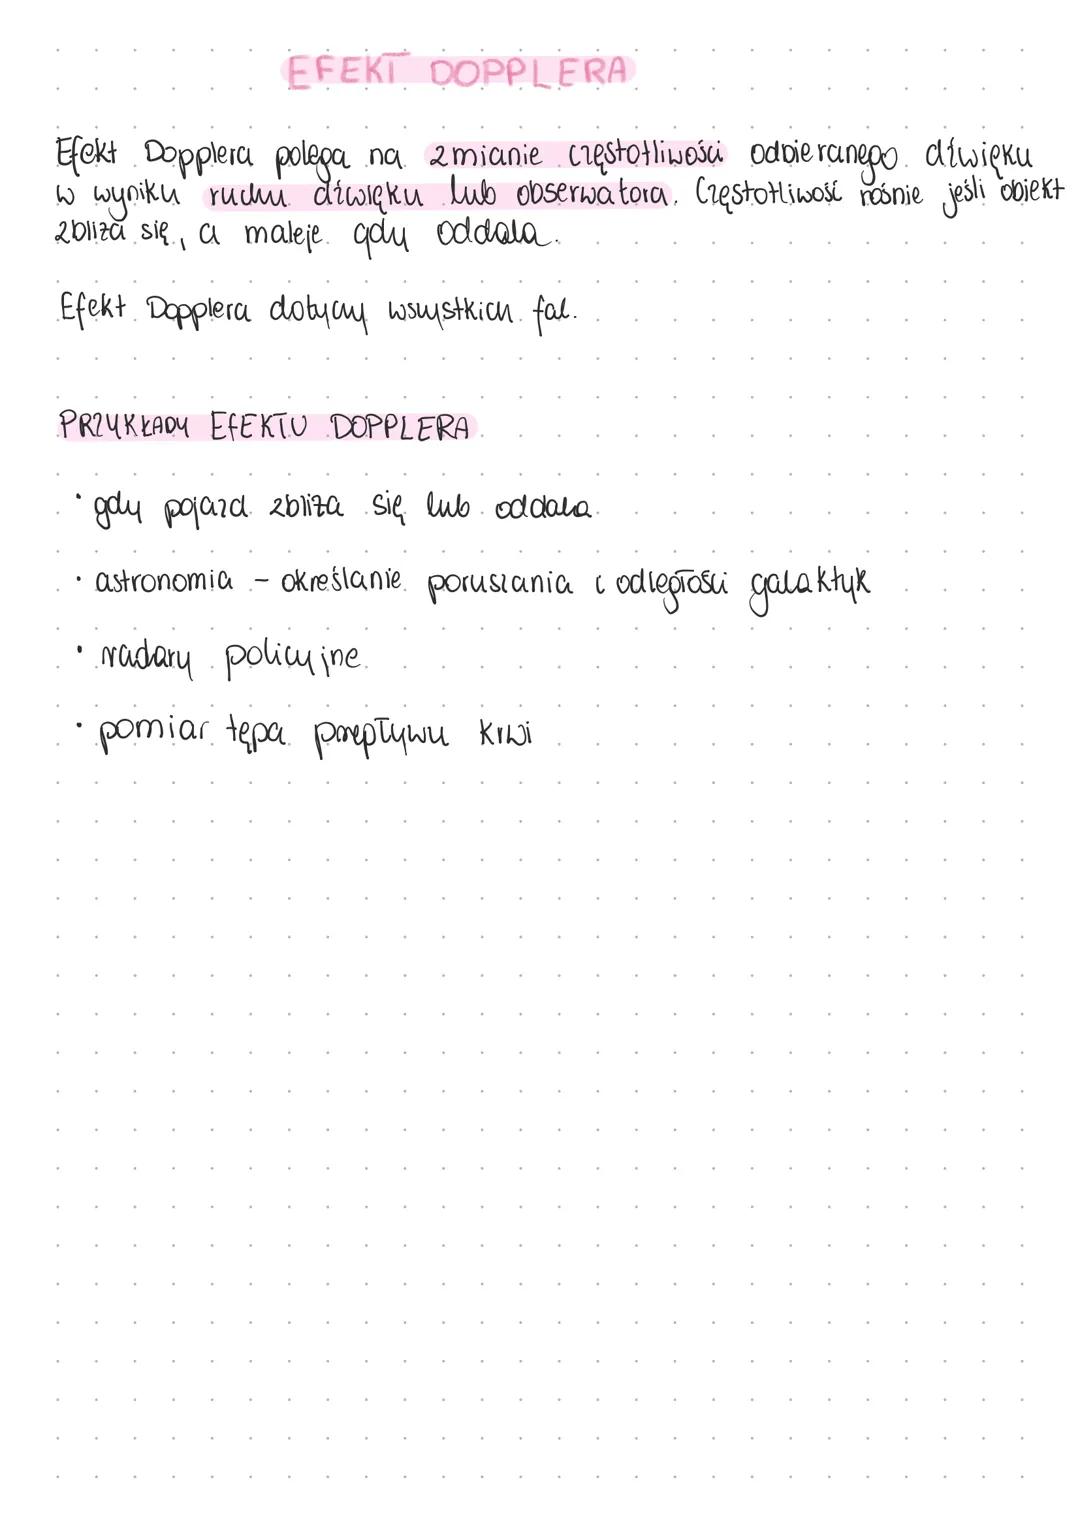 EFEKT DOPPLERA
Efekt Dopplera polega na zmianie częstotliwości odbieranego dźwięku
w wyniku ruchu dźwięku lub obserwatora. Częstotliwość rośnie jeśli obiekt
zbliża się, a maleje gdy oddala.
Efekt Dopplera dotyczy wszystkich fal.
PRZYKŁADY EFEKTU DOPPLERA
· gdy pojazd zbliża się lub oddala
· astronomia - określanie poruszania i odległości galaktyk
· radary policyjne
· pomiar tępa przepływu krwi